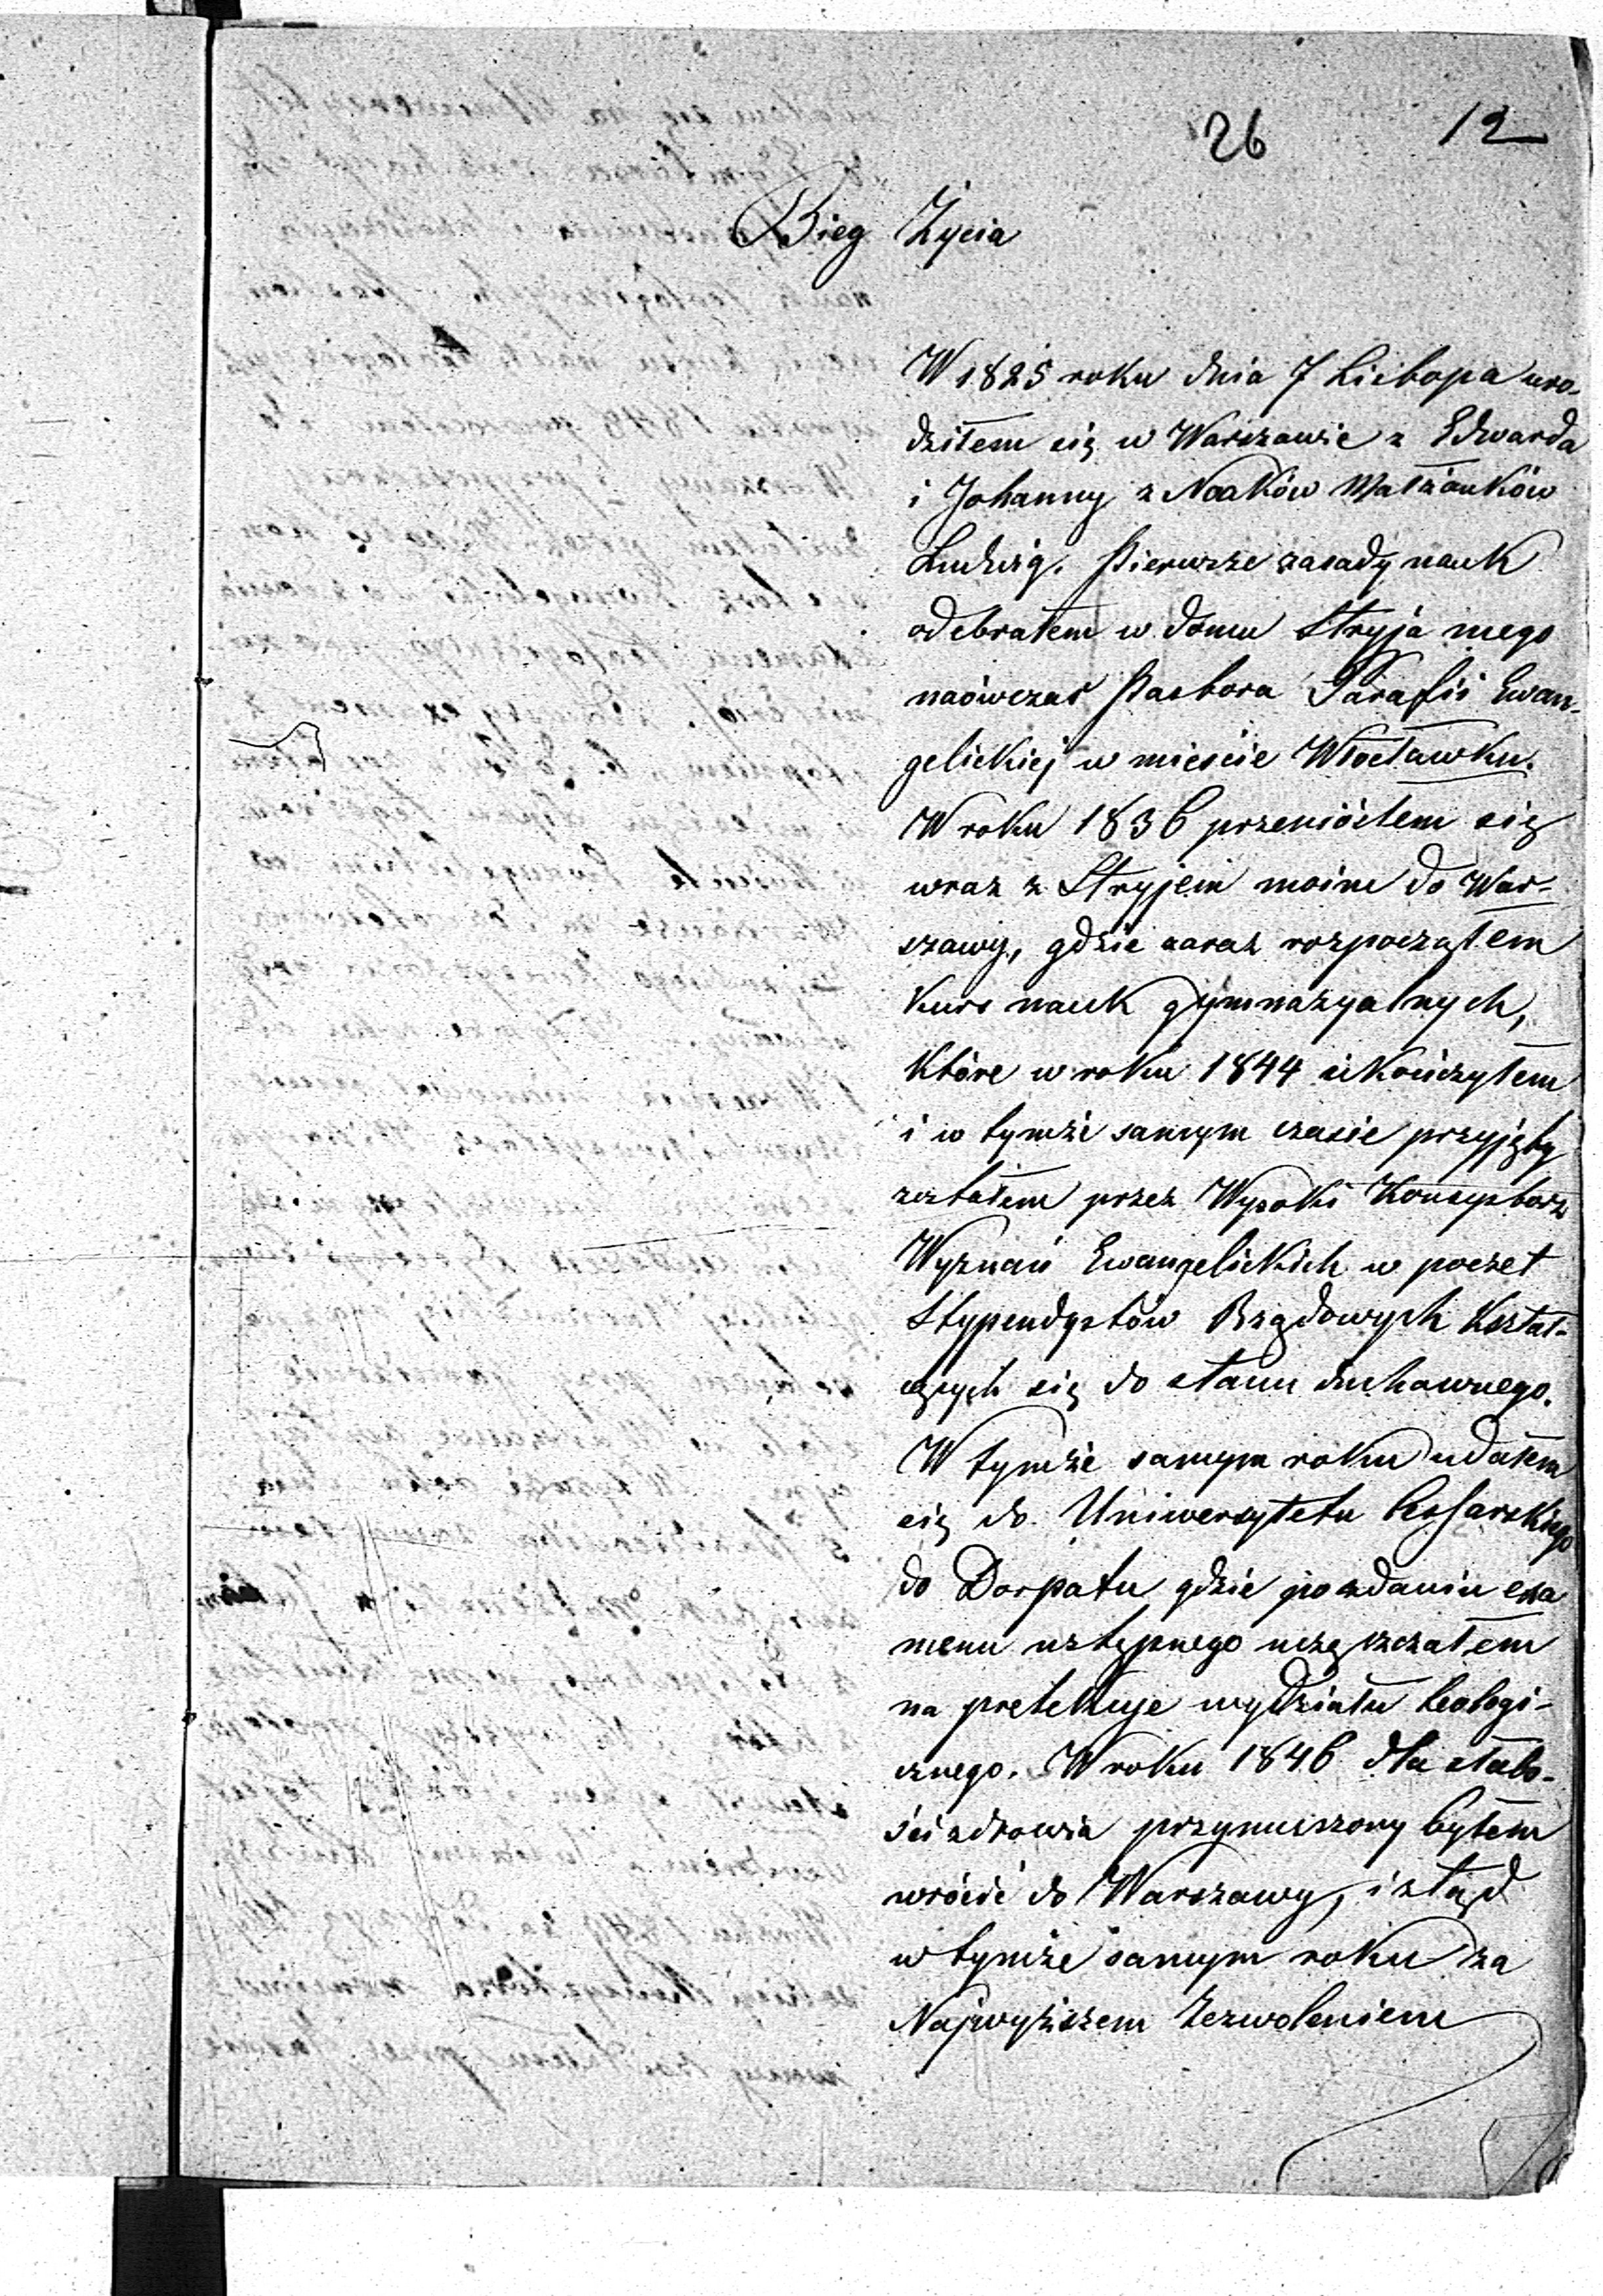 26 12
Bieg Życia
W 1825 roku dnia 7 Listopa uro-
dziłem się w Warszawie z Edwarda
i Johanny z Noaków Małżonków
Ludwig. Pierwsze zasady nauk
odebrałem w domu Stryja mego
naówczas Pastora Parafii Ewan-
gelickiej w mieście Włocławku.
W roku 1836 przeniósłem się
wraz z Stryjem moim do War-
szawy, gdzie zaraz rozpocząłem
kurs nauk gymnazyalnych,
które w roku 1844 ukończyłem
i w tymże samym czasie przyjęty
zostałem przez Wysoki Konsystorz
Wyznań Ewangelickich w poczet
Stypendystów Rządowych kształ-
cących się do stanu duchownego.
W tymże samym roku udałem
się do Uniwersytetu Cessarskiego
do Dorpatu gdzie po zdaniu exa
menu wstępnego uczęszczałem
na prelekcye wydziału teologi-
cznego. W roku 1846 dla słabo-
ści zdrowia przymuszony byłem
wrócić do Warszawy, i ztąd
w tymże samym roku za
Najwyższem Zezwoleniem